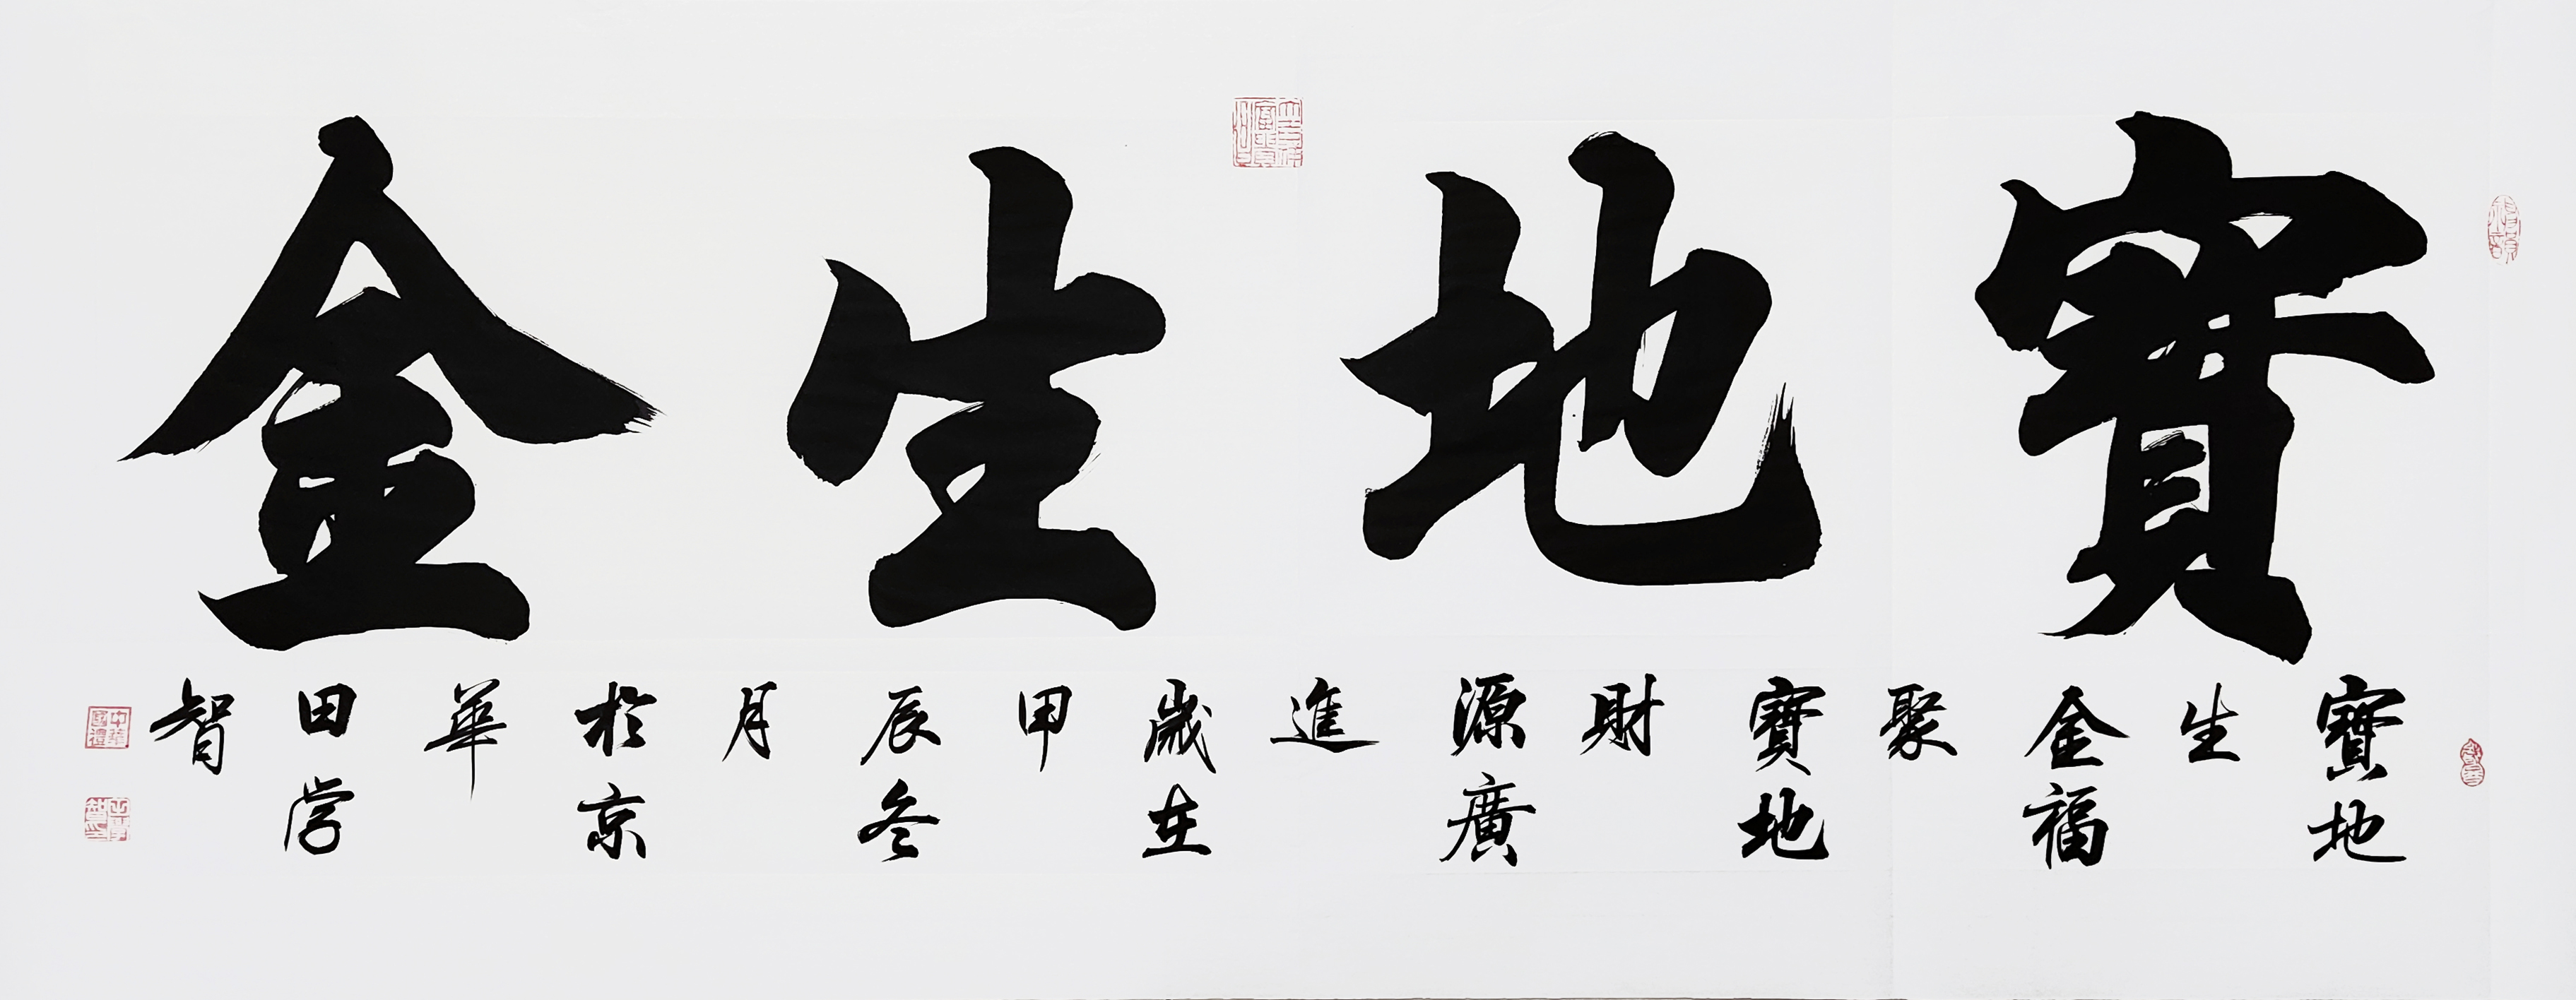 寶地生金
寶地生金福聚寶地財源廣進歲在甲辰冬月於京華田学智
中華國禮